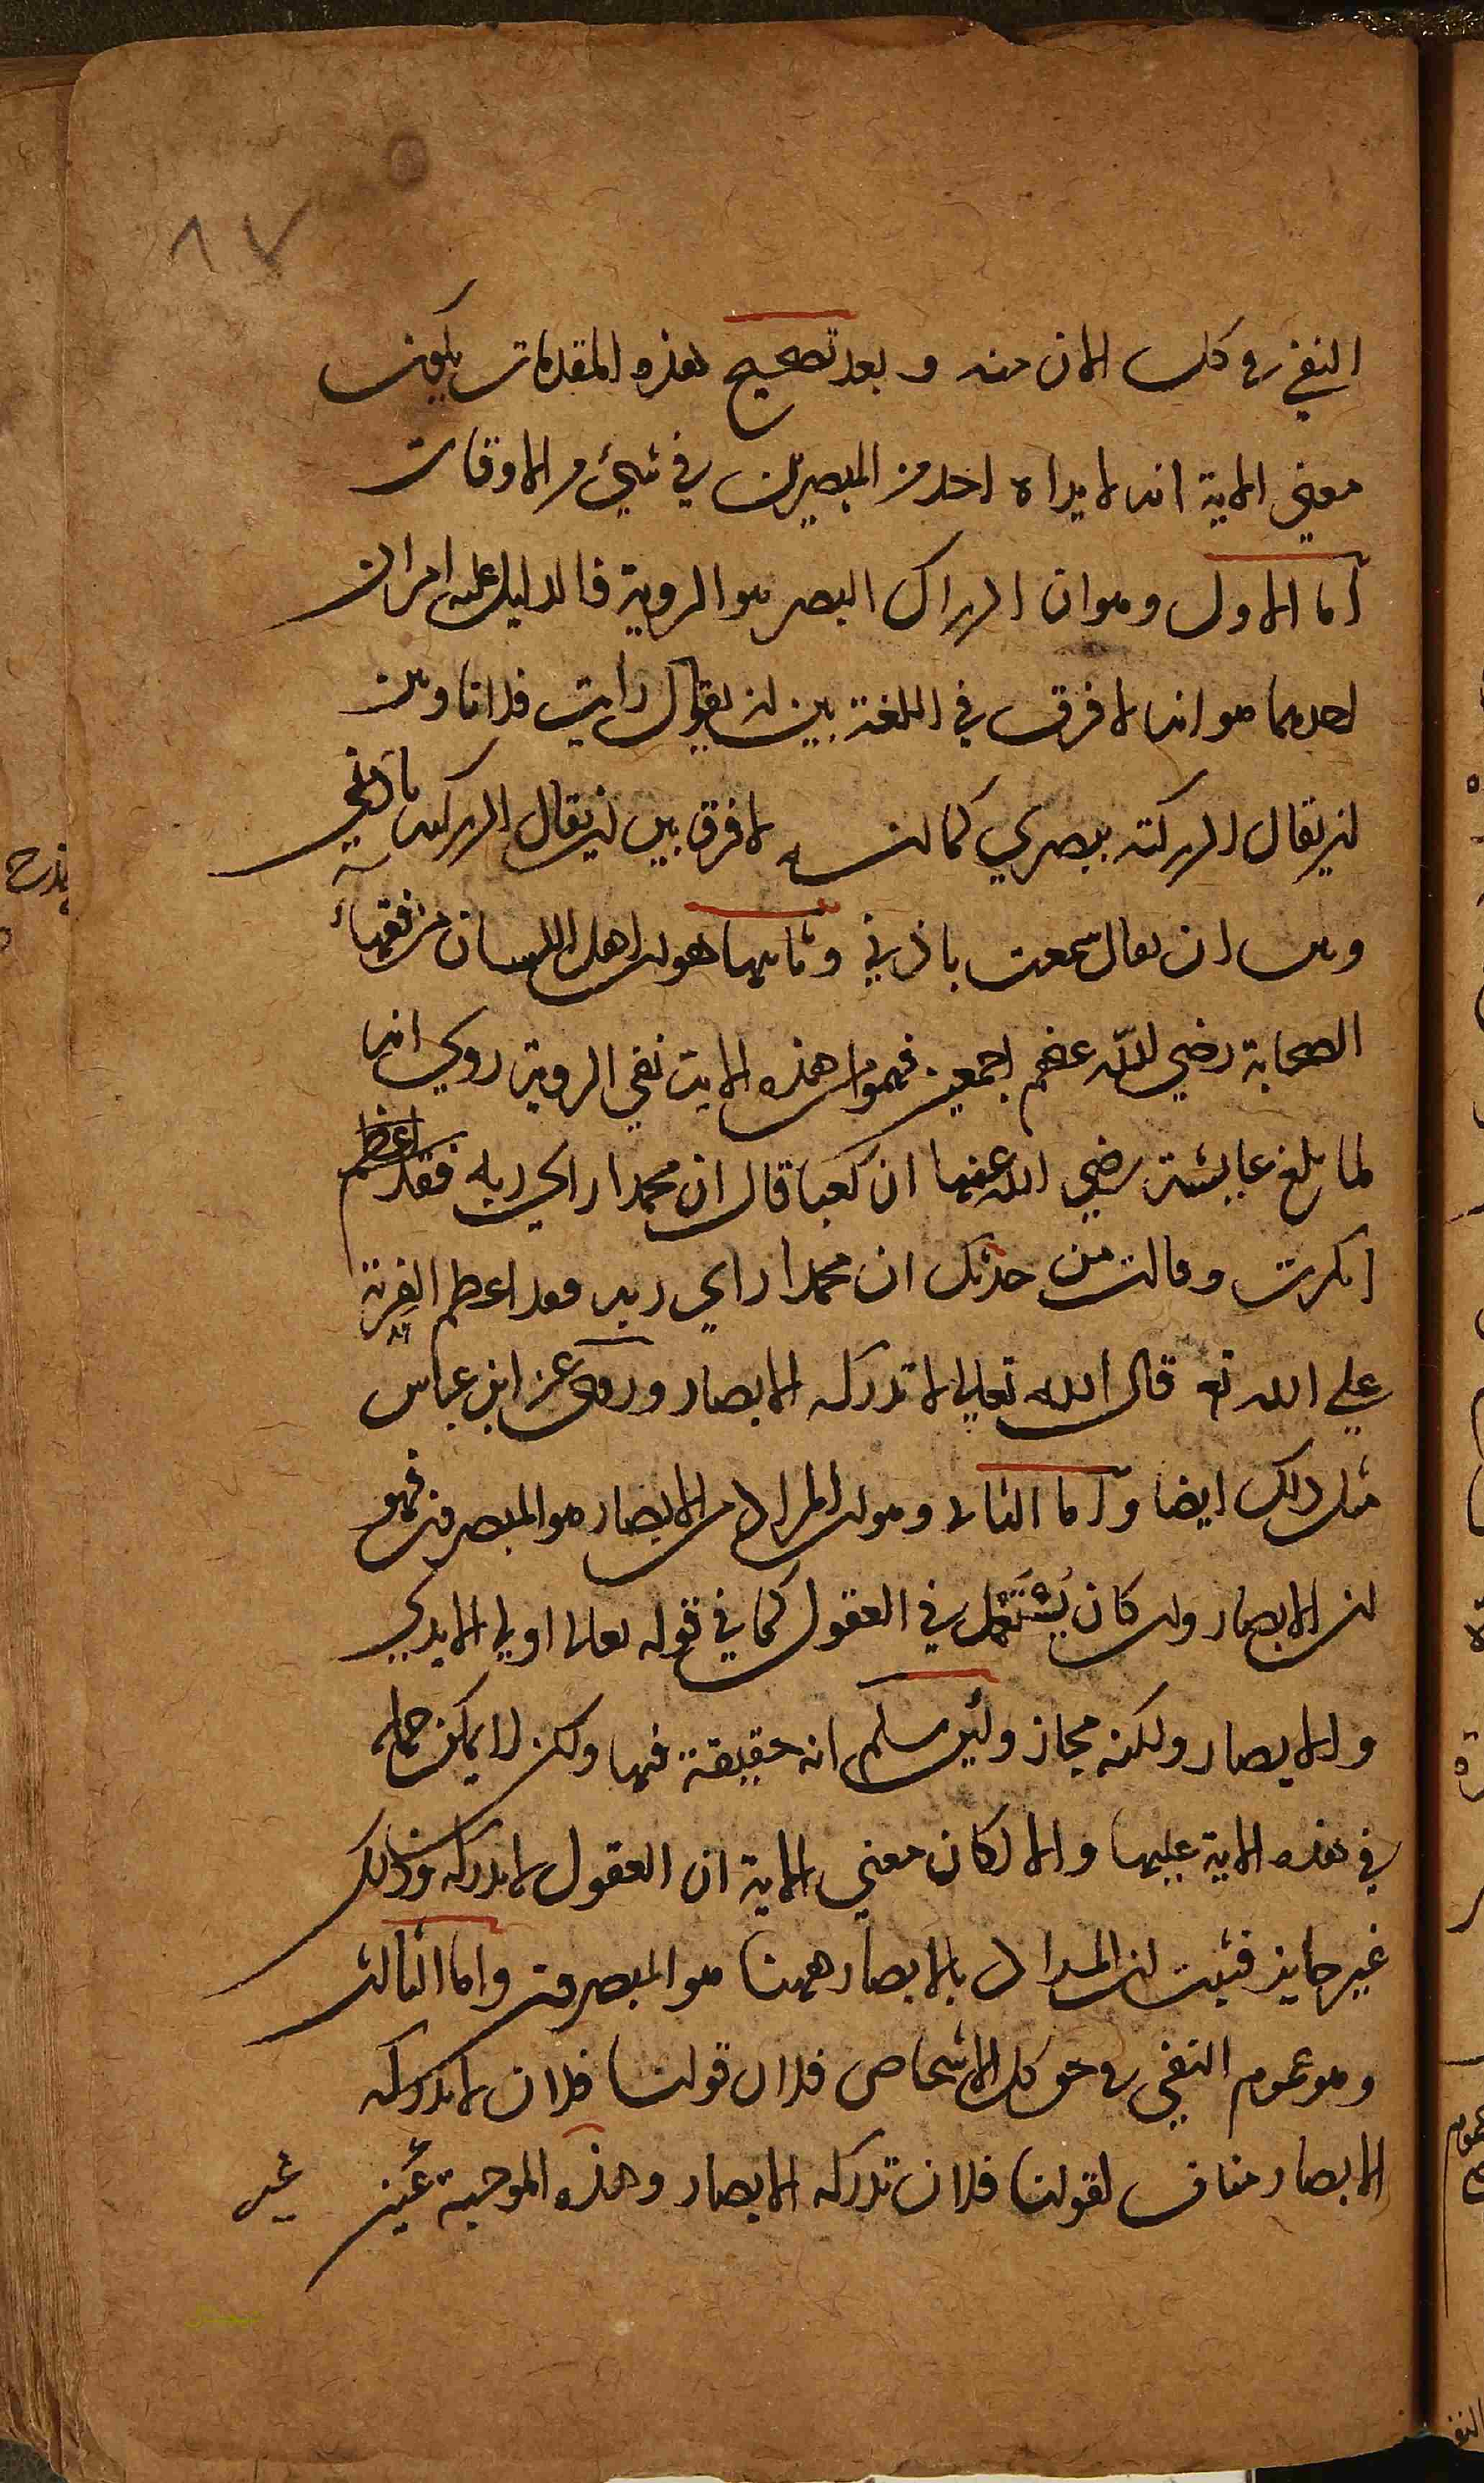 ٨٧
النفي في كل الازمنة وبعد تصحيح هذه المقدمات يكون
معني الاية انه لا يراه احد من المبصرين في شيئ من الاوقات
اما الاول وهو ان ادراك البصر هو الروية فالدليل عليه امران
احدهما هو انه لا فرق في اللغة بين ان يقول رايت فلانا وبين
ان يقال ادركته ببصري كما انه لا فرق بين ان يقال ادركته باذني
وبين ان يقال سمعت باذني وثانيها هو ان اهل اللسان من فقهاء
الصحابة رضي الله عنهم اجمعين فهموا من هذه الاية نفي الروية روي انه
لما بلغ عايشة رضي الله عنها ان كعبا قال ان محمدا راي ربه فقد اعظم
انكرت وقالت من حدثك ان محمدا راي ربه فقد اعظم الفرية
علي الله تع قال الله تعالي لا تدركه الابصار وروي عن ابن عباس
مثل ذلك ايضا واما الثاني وهو ان المراد من الابصار هو المبصرون فهو
ان الابصار وان كان يستعمل في العقول كما في قوله تعالي اولي الايدي
والابصار ولكنه مجاز ولئن سلم انه حقيقة فيها ولكن لا يمكن حمله
في هذه الاية عليها والا لكان معني الاية ان العقول لا تدركه وذلك
غير جايز فثبت ان المراد بالابصار ههنا هو المبصرون واما الثالث
وهو عموم النفي في حق كل الاشخاص فلان قولنا فلان لا تدركه
الابصار مناف لقولنا فلان تدركه الابصار وهذه الموجبة غير
غير